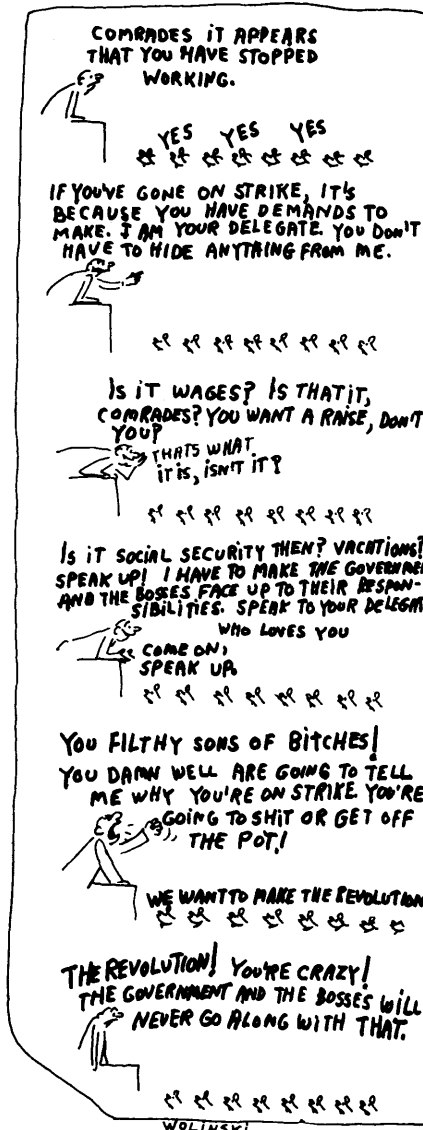 COMRADES IT APPEARS
THAT YOU HAVE STOPPED
WORKING.
YES YES YES
IF YOU'VE GONE ON STRIKE, IT'S
BECAUSE YOU HAVE DEMANDS TO
MAKE. I AM YOUR DELEGATE. YOU DON'T
HAVE TO HIDE ANYTHING FROM ME.
IS IT WAGES? IS THAT IT,
COMRADES? YOU WANT A RAISE, DON'T
YOU?
THATS WHAT
IT IS, ISN'T IT?
IS IT SOCIAL SECURITY THEN? VACATIONS?
SPEAK UP! I HAVE TO MAKE THE GOVERNME
AND THE BOSSES FACE UP TO THEIR RESPON-
SIBILITIES. SPEAK TO YOUR DELEGAT
WHO LOVES YOU
COME ON,
SPEAK UP.
YOU FILTHY SONS OF BITCHES!
YOU DAMN WELL ARE GOING TO TELL
ME WHY YOU'RE ON STRIKE. YOU'RE
GOING TO SHIT OR GET OFF
THE POT!
WE WANT TO MAKE THE REVOLUTION
THE REVOLUTION! YOU'RE CRAZY!
THE GOVERNMENT AND THE BOSSES WILL
NEVER GO ALONG WITH THAT.
WOLINSKI